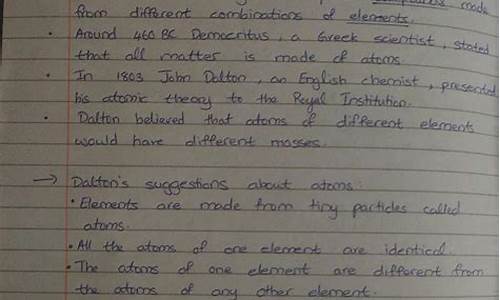 made
from different combinations of elements.
• Around 460 BC Democritus, a Greek scientist, stated
that all matter is made of atoms.
• In 1803 John Dalton, an English chemist, presented
his atomic theory to the Royal Institution.
• Dalton believed that atoms of different elements
would have different masses.
→ Dalton's suggestions about atoms:
• Elements are made from tiny particles called
atoms.
• All the atoms of one element are identical.
• The atoms of one element are different from
the atoms of any other element.